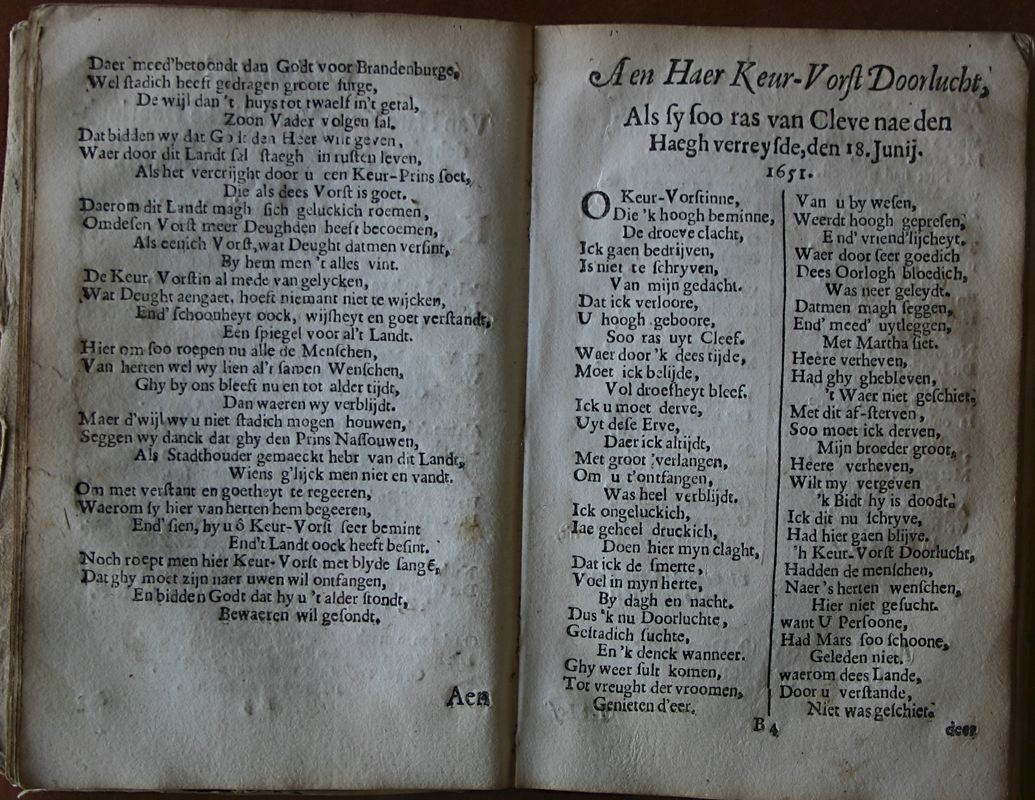 Daer meed' betoondt dan Godt voor Brandenburge,
Wel stadich heeft gedragen groote surge,
De wijl dan 't huys tot twaelf in't getal,
Zoon Vader volgen sal.
Dat bidden wy dat Godt den Heer wil geven,
Waer door dit Landt sal staegh in rusten leven,
Als het vercrijght door u een Keur-Prins soet,
Die als dees Vorst is goet.
Daerom dit Landt magh sich geluckich roemen,
Om desen Vorst meer Deughden heeft becoemen,
Als eenich Vorst, wat Deught datmen versint,
By hem men 't alles vint.
De Keur Vorstin al mede van gelycken,
Wat Deught aengaet, hoeft niemant niet te wijcken,
End' schoonheyt oock, wijsheyt en goet verstandt,
Een spiegel voor al't Landt.
Hier om soo roepen nu alle de Menschen,
Van herten wel wy lien al't samen Wenschen,
Ghy by ons bleeft nu en tot alder tijdt,
Dan waeren wy verblijdt.
Maer d'wijl wy u niet stadich mogen houwen,
Seggen wy danck dat ghy den Prins Nassouwen,
Als Stadthouder gemaeckt hebt van dit Landt,
Wiens g'lijck men niet en vandt.
Om met verstant en goetheyt te regeeren,
Waerom sy hier van herten hem begeeren,
End' sien, hy u ô Keur-Vorst seer bemint
End't Landt oock heeft besint.
Noch roept men hier Keur-Vorst met blyde sange,
Dat ghy moet zijn naer uwen wil ontfangen,
En bidden Godt dat hy u 't alder stondt,
Bewaeren wil gesondt.
Aen
Aen Haer Keur-Vorst Doorlucht,
Als sy soo ras van Cleve nae den
Haegh verreysde, den 18. Junij.
1651.
O Keur-Vorstinne,
Die 'k hoogh beminne,
De droeve clacht,
Ick gaen bedrijven,
Is niet te schryven,
Van mijn gedacht.
Dat ick verloore,
U hoogh geboore,
Soo ras uyt Cleef.
Waer door 'k dees tijde,
Moet ick belijde,
Vol droefheyt bleef.
Ick u moet derve,
Uyt dese Erve,
Daer ick altijdt,
Met groot verlangen,
Om u t'ontfangen,
Was heel verblijdt.
Ick ongeluckich,
Jae geheel druckich,
Doen hier myn claght,
Dat ick de smerte,
Voel in myn herte,
By dagh en nacht.
Dus 'k nu Doorluchte,
Gestadich suchte,
En 'k denck wanneer.
Ghy weer sult komen,
Tot vreught der vroomen,
Genieten d'eer.
Van u by wesen,
Weerdt hoogh gepresen,
End' vriend'lijcheyt.
Waer door seer goedich
Dees Oorlogh bloedich,
Was neer geleydt.
Datmen magh seggen,
End' meed' uytleggen,
Met Martha siet.
Heere verheven,
Had ghy ghebleven,
't Waer niet geschiet,
Met dit af-sterven,
Soo moet ick derven,
Mijn broeder groot,
Heere verheven,
Wilt my vergeven
'k Bidt hy is doodt.
Ick dit nu schryve,
Had hier gaen blijve.
'h Keur-Vorst Doorlucht,
Hadden de menschen,
Naer 's herten wenschen,
Hier niet gesucht.
want U Persoone,
Had Mars soo schoone,
Geleden niet.
waerom dees Lande,
Door u verstande,
Niet was geschiet.
B 4
deer